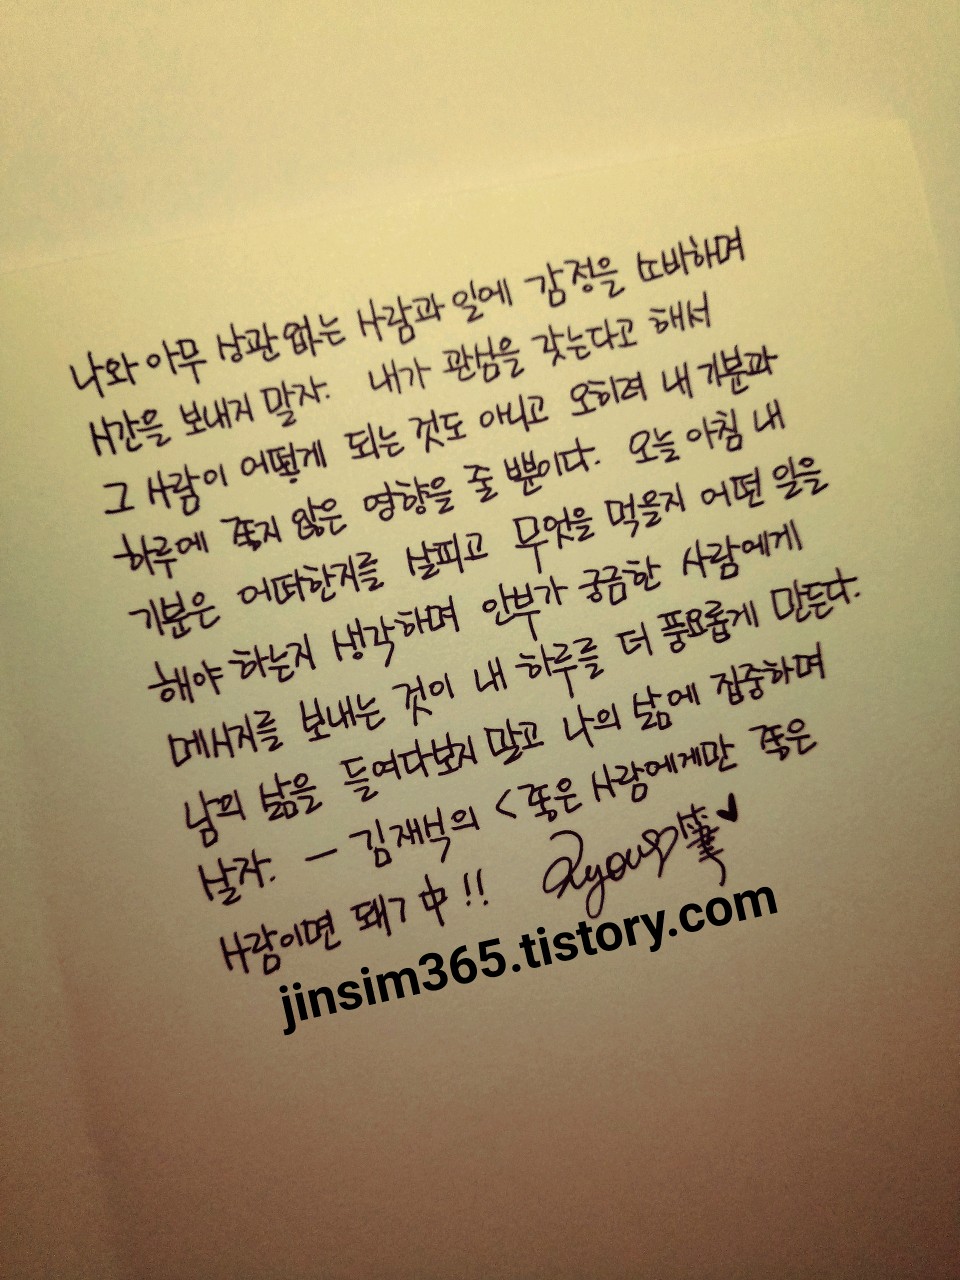 나와 아무 상관 없는 사람과 일에 감정을 소비하며
시간을 보내지 말자. 내가 관심을 갖는다고 해서
그 사람이 어떻게 되는 것도 아니고 오히려 내 기분과
하루에 좋지 않은 영향을 줄 뿐이다. 오늘 아침 내
기분은 어떠한지를 살피고 무엇을 먹을지 어떤 일을
해야 하는지 생각하며 안부가 궁금한 사람에게
메시지를 보내는 것이 내 하루를 더 풍요롭게 만든다.
남의 삶을 들여다보지 말고 나의 삶에 집중하며
살자. - 김재식의 <좋은 사람에게만 좋은
사람이면 돼> 中!!
jinsim365.tistory.com